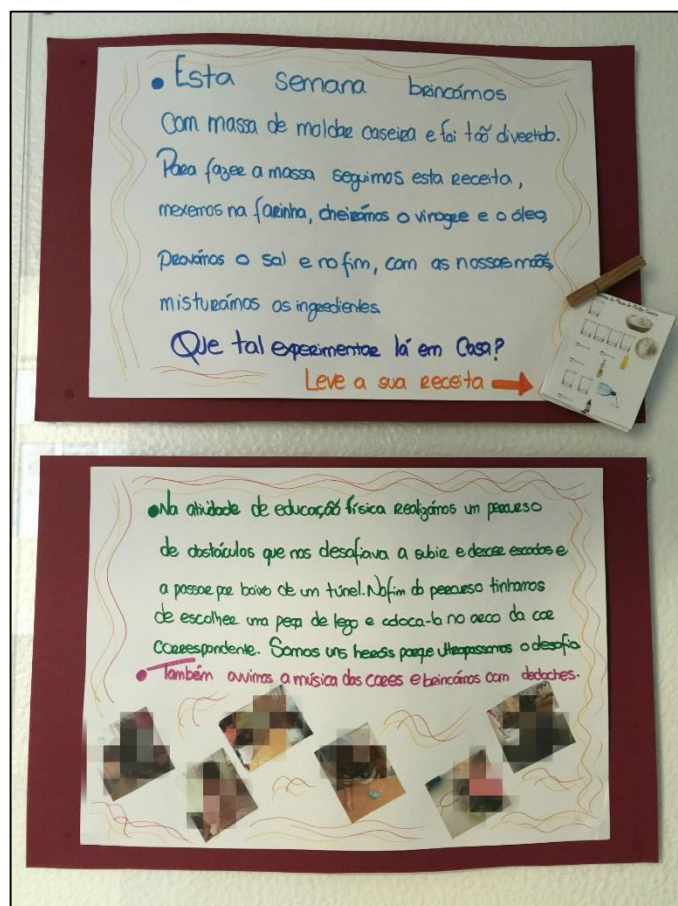 • Esta semana brincámos
Com massa de moldar caseira e foi tão divertido.
Para fazer a massa seguimos esta receita,
mexemos na farinha, cheirámos o vinagre e o óleo,
provámos o sal e no fim, com as nossas mãos,
misturámos os ingredientes.
Que tal experimentar lá em Casa?
Leve a sua receita →
• Na atividade de educação física realizámos um percurso
de obstáculos que nos desafiava a subir e descer escadas e
a passar por baixo de um túnel. No fim do percurso tinhamos
de escolher uma peça de lego e coloca-la no arco da cor
correspondente. Somos uns heróis porque ultrapassamos o desafio.
• Também ouvimos a música das cores e brincámos com dedoches.